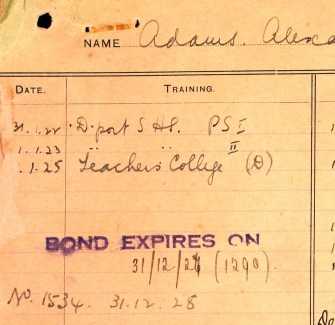 NAME Adams. Alexa
DATE. TRAINING.
31.1.22 D'port S HS. PS I
1.1.23 " " II
.1.25 Teachers College (D)
BOND EXPIRES ON
31/12/28 (1290).
No. 1534. 31.12.28